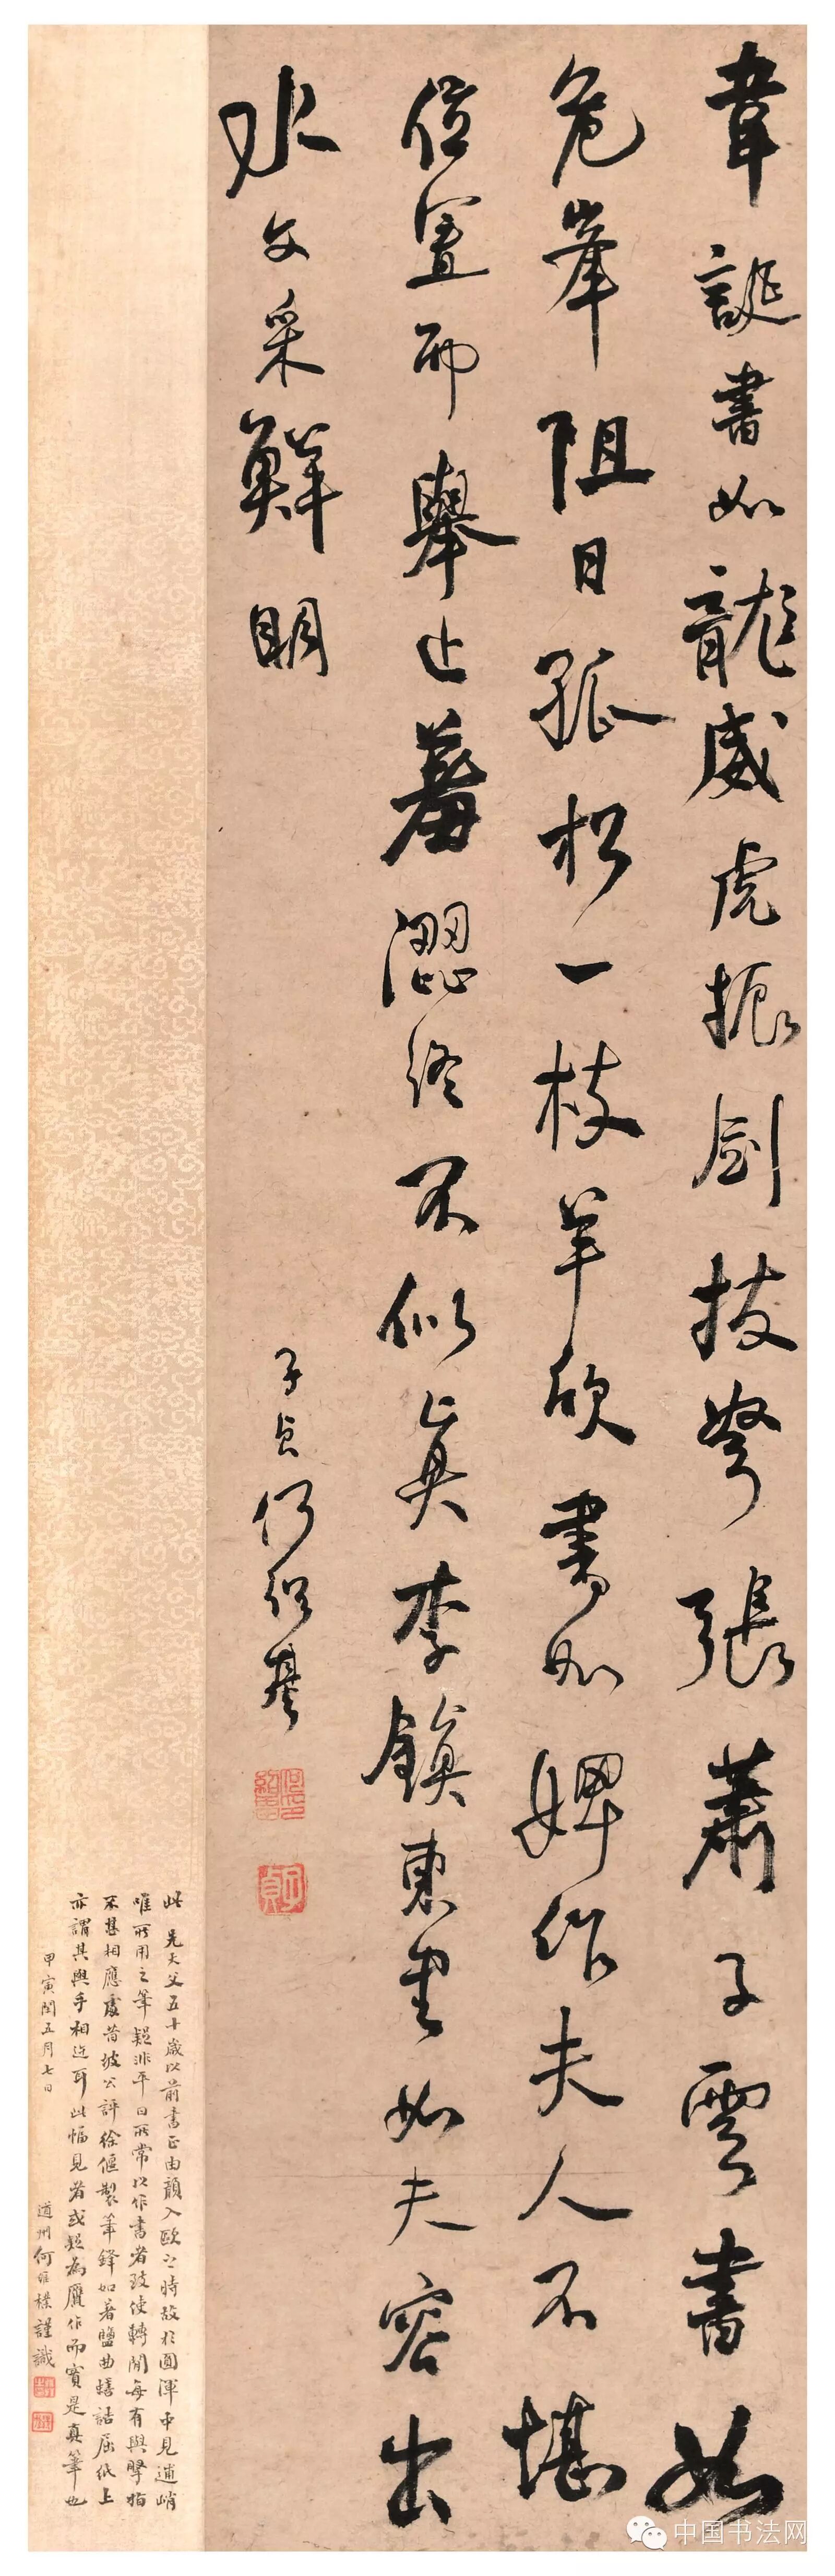 韋誕書如龍威虎振劍拔弩張蕭子雲書如
危峯阻日孤松一枝羊欣書如婢作夫人不堪
位置而舉止羞澀終不似真李鎮東書如芙容出
水文采鮮明
子貞何紹基
何紹基印
子貞
此先大父五十歲以前書正由顏入歐之時故於圓渾中見遒峭
唯所用之筆疑非平日所常以作書者致使轉間每有與擘指
不甚相應處昔坡公評徐偃製筆鋒如著鹽曲蟮詰屈紙上
亦謂其與手相迕耳此幅見者或疑為贋作而實是真筆也
甲寅閏五月七日
道州何維樸謹識
中国书法网